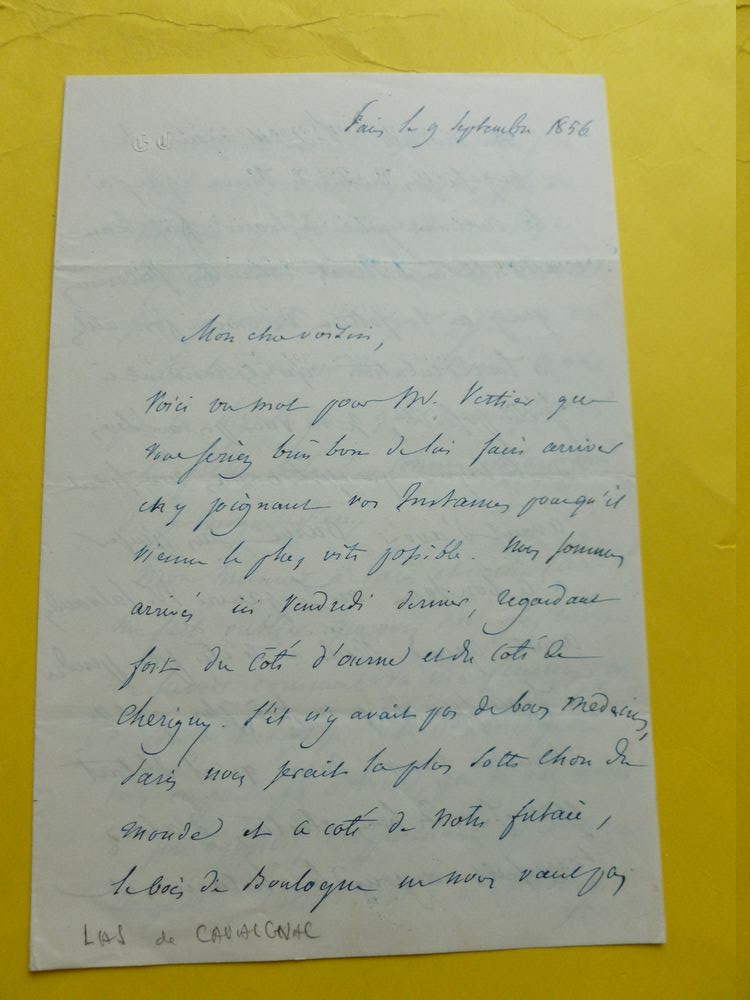 EC
Paris le 9 Septembre 1856
Mon cher voisin,
Voici un mot pour Mr. Vettier que
vous seriez bien bon de lui faire arriver
en y joignant vos Instances pour qu'il
vienne le plus vite possible. Nous sommes
arrivés ici Vendredi dernier, regardant
fort du Côté d'ourne et du Coté de
Cherigny. S'il n'y avait pas de bons Médecins,
Paris nous serait la plus Sotte Chose du
monde et a coté de notre futaie,
le bois de Boulogne ne nous vaut pas
LAS de CAVAIGNAC